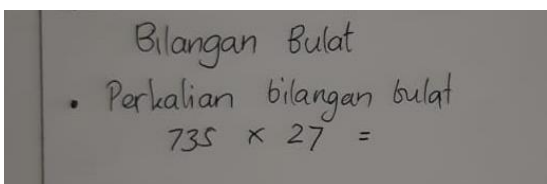 Bilangan Bulat
• Perkalian bilangan bulat
735 × 27 =